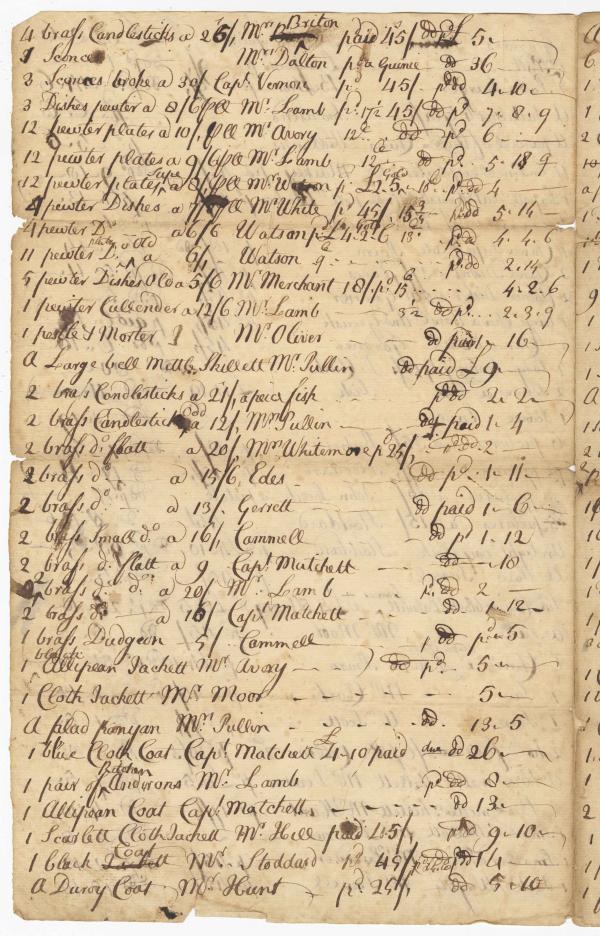 4 brass Candlesticks a 25/, Mrs Briton paid 45/ dd pd £ 5
1 Sconce Mrs Dalton pd a Guinee dd 36
3 Sconces broke a 30/ Capt Vernon pd 45/ pd dd 4 10
3 Dishes pewter a 8/6 pll Mr Lamb pd 17½ 45/ dd pd 7 8 9
12 pewter plates a 10/, pll Mr Avory 12 dd pd 6
12 pewter plates a 9/6 pll Mr Lamb 12 dd pd 5 18 9
12 pewter plates Supe a 8/ pll Mr Watson pd £2 5 pd dd 4
4 pewter Dishes a pll Mr White pd 45/ 15 pd dd 5 14
4 pewter Do a 6/6 Watson pd £4 2 6 13 4 4 6
11 pewter Do plates old a 6/, Watson 9 pd dd 2 14
5 pewter Dishes Old a 5/6 Mr Merchant 18/ pd 15 4 2 6
1 pewter Cullender a 12/6 Mr Lamb 3½ dd pd 2 3 9
1 pestle & Morter Mr Oliver dd paid 16
A Large bell Mettle Skillett Mr Pullin dd paid £9
2 brass Candlesticks a 21/, apeice fish pd dd 2 2
2 brass Candlesticks a 12/, Mr Pullin dd paid 1 4
2 brass do flatt a 20/ Mrs Whitemore pd 25/, pd dd 2
2 brass do a 15/6, Edes dd pd 1 11
2 brass do a 13/ Gerrett dd paid 1 6
2 brass Small do a 16/, Cammell dd pd 1 12
2 brass do flatt a 9 Capt Matchett dd 18
2 brass do do a 20/ Mr Lamb pd dd 2
2 brass do a 16/ Capt Matchett dd 1 12
1 brass Dudgeon 5/, Cammell dd pd 5
1 black Allipean Jackett Mr Avory dd pd 5
1 Cloth Jackett Mr Moor 5
A plad Banyan Mr Pullin dd 13 5
1 blue Cloth Coat Capt Matchett £4-10 paid due dd 26
1 pair of Kitchen Andirons Mr Lamb pd dd 8
1 Allipean Coat Capt Matchett dd 13
1 Scarlett Cloth Jackett Mr Hill paid 45/ pd dd 9 10
1 black Coat Mr Stoddard pd 45/ pd dd 14
A Duroy Coat Mr Hunt pd 25/, dd 5 10